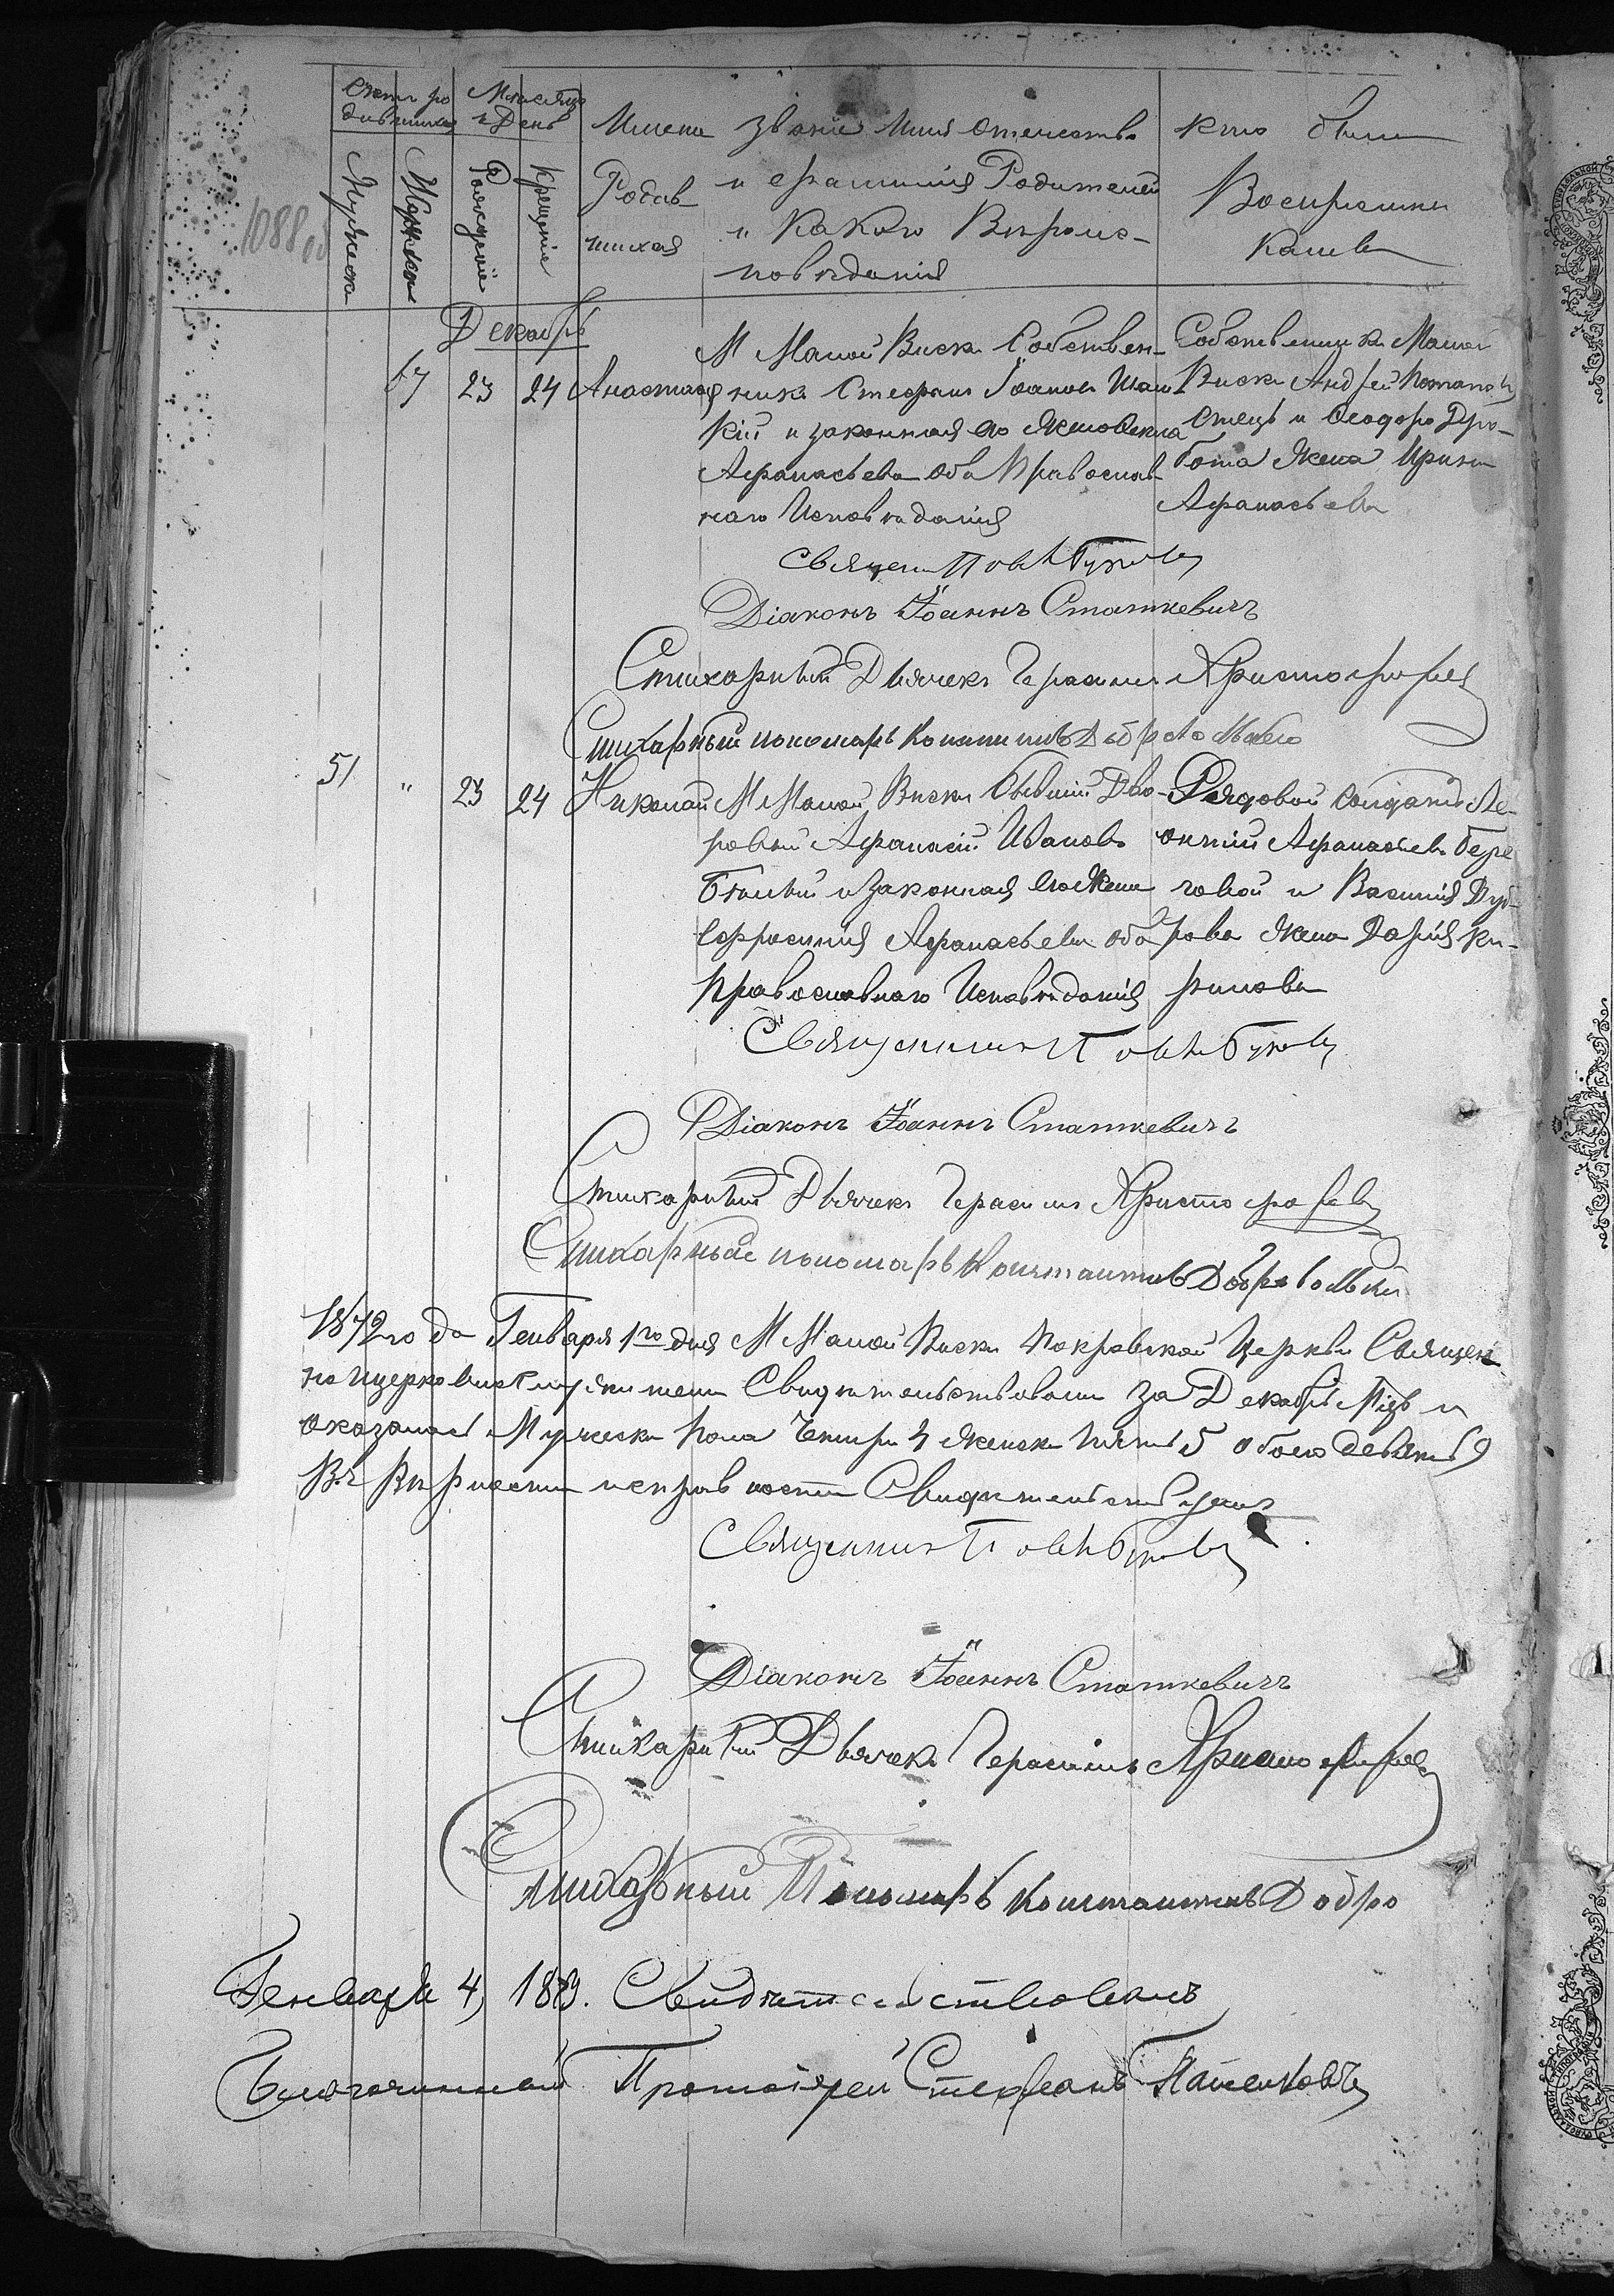 1088 об
Счетъ родившихся
Мѣсяцъ и День
Мужеска
Женска
Рожденiе
Крещенiе
Имена Родившихся
Званiе Имя Отечество
и фамилiя Родителей
и Какого Вѣроис-
повѣданiя
Кто были
Воспрiемни
ками
Декабрь
67 23 24 Анастасiя
М Малой Виски Собствен-
ника Стефанъ Iоановъ
кiй и законная его жена
Афанасьева оба Православ-
наго Исповѣданiя
Собственникъ Малой
Виски Андрей
Отецъ и Феодора Дро-
бота жена Ирина
Афанасьева
Священ
Дiаконъ Iоаннъ Статкевичъ
Стихарный Дьячекъ Герасимъ Христофоровъ
Стихарный пономарь Константинъ Добровольскiй
51 " 23 24 Николай
М Малой Виски бывшiй Дво-
ровый Афанасiй Ивановъ
и Законная его Жена
Ефросинiя Афанасьева оба
Православнаго Исповѣданiя
Рядовой Солдатъ Ле-
онтiй Афанасьевъ Бере
говой и Василiя Дуб-
рова жена Дарiя Ки-
рилова
Священникъ
Дiаконъ Iоаннъ Статкевичъ
Стихарный Дьячекъ Герасимъ Христофоровъ
Стихарный пономарь Константинъ Добровольскiй
1872го да Генваря 1го дня М Малой Виски Покровской Церкви Священ
но церковнослужители Свидѣтельствовали За Декабрь Мцъ и
оказалось Мужеска пола Четыри 4 женска пять 5 обоего девять 9
Въ Вѣрности исправности Свидѣтельствуемъ
Священникъ
Дiаконъ Iоаннъ Статкевичъ
Стихарный Дьячекъ Герасимъ Христофоровъ
Стихарный Пономарь Константинъ Добро
Генваря 4, Свидѣтельствовалъ
Благочинный Протоiерей Стефанъ